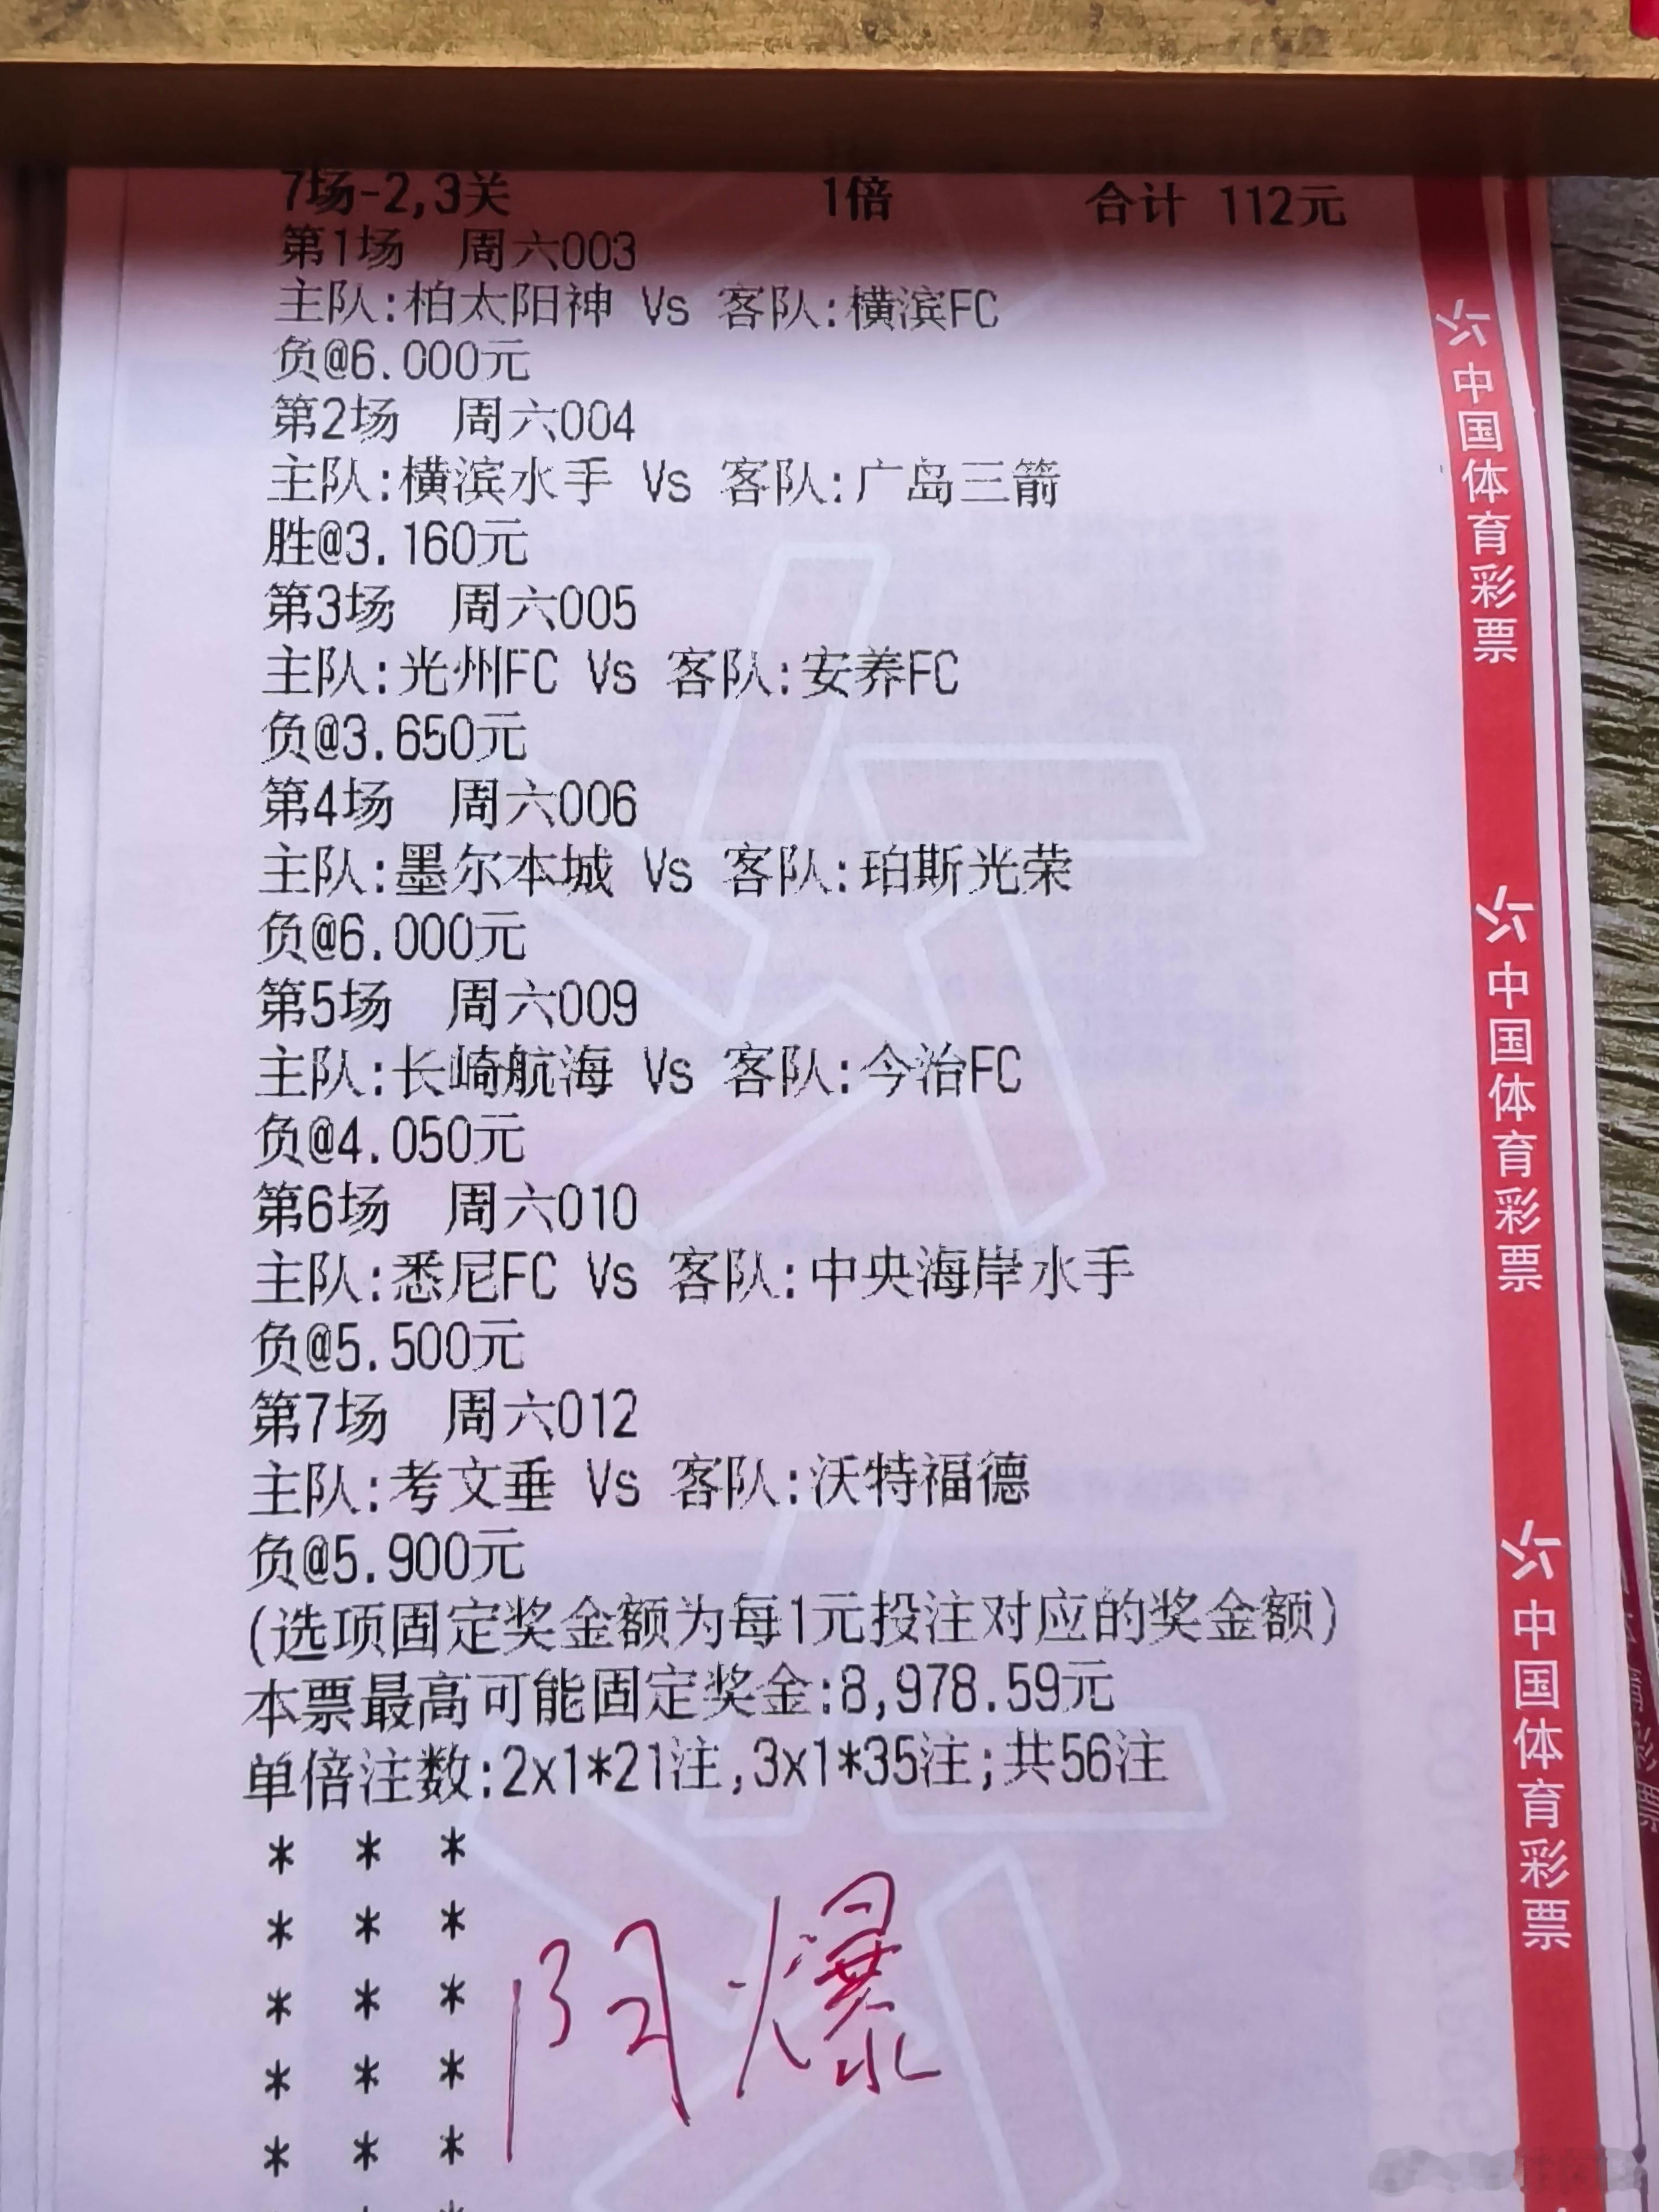 7场-2,3关 1倍 合计 112元
第1场 周六003
主队:柏太阳神 Vs 客队:横滨FC
负@6.000元
第2场 周六004
主队:横滨水手 Vs 客队:广岛三箭
胜@3.160元
第3场 周六005
主队:光州FC Vs 客队:安养FC
负@3.650元
第4场 周六006
主队:墨尔本城 Vs 客队:珀斯光荣
负@6.000元
第5场 周六009
主队:长崎航海 Vs 客队:今治FC
负@4.050元
第6场 周六010
主队:悉尼FC Vs 客队:中央海岸水手
负@5.500元
第7场 周六012
主队:考文垂 Vs 客队:沃特福德
负@5.900元
(选项固定奖金额为每1元投注对应的奖金额)
本票最高可能固定奖金:8,978.59元
单倍注数:2x1*21注,3x1*35注;共56注
* * *
* * *
* * *
* * *
* * *
阿爆
中国体育彩票
中国体育彩票
中国体育彩票